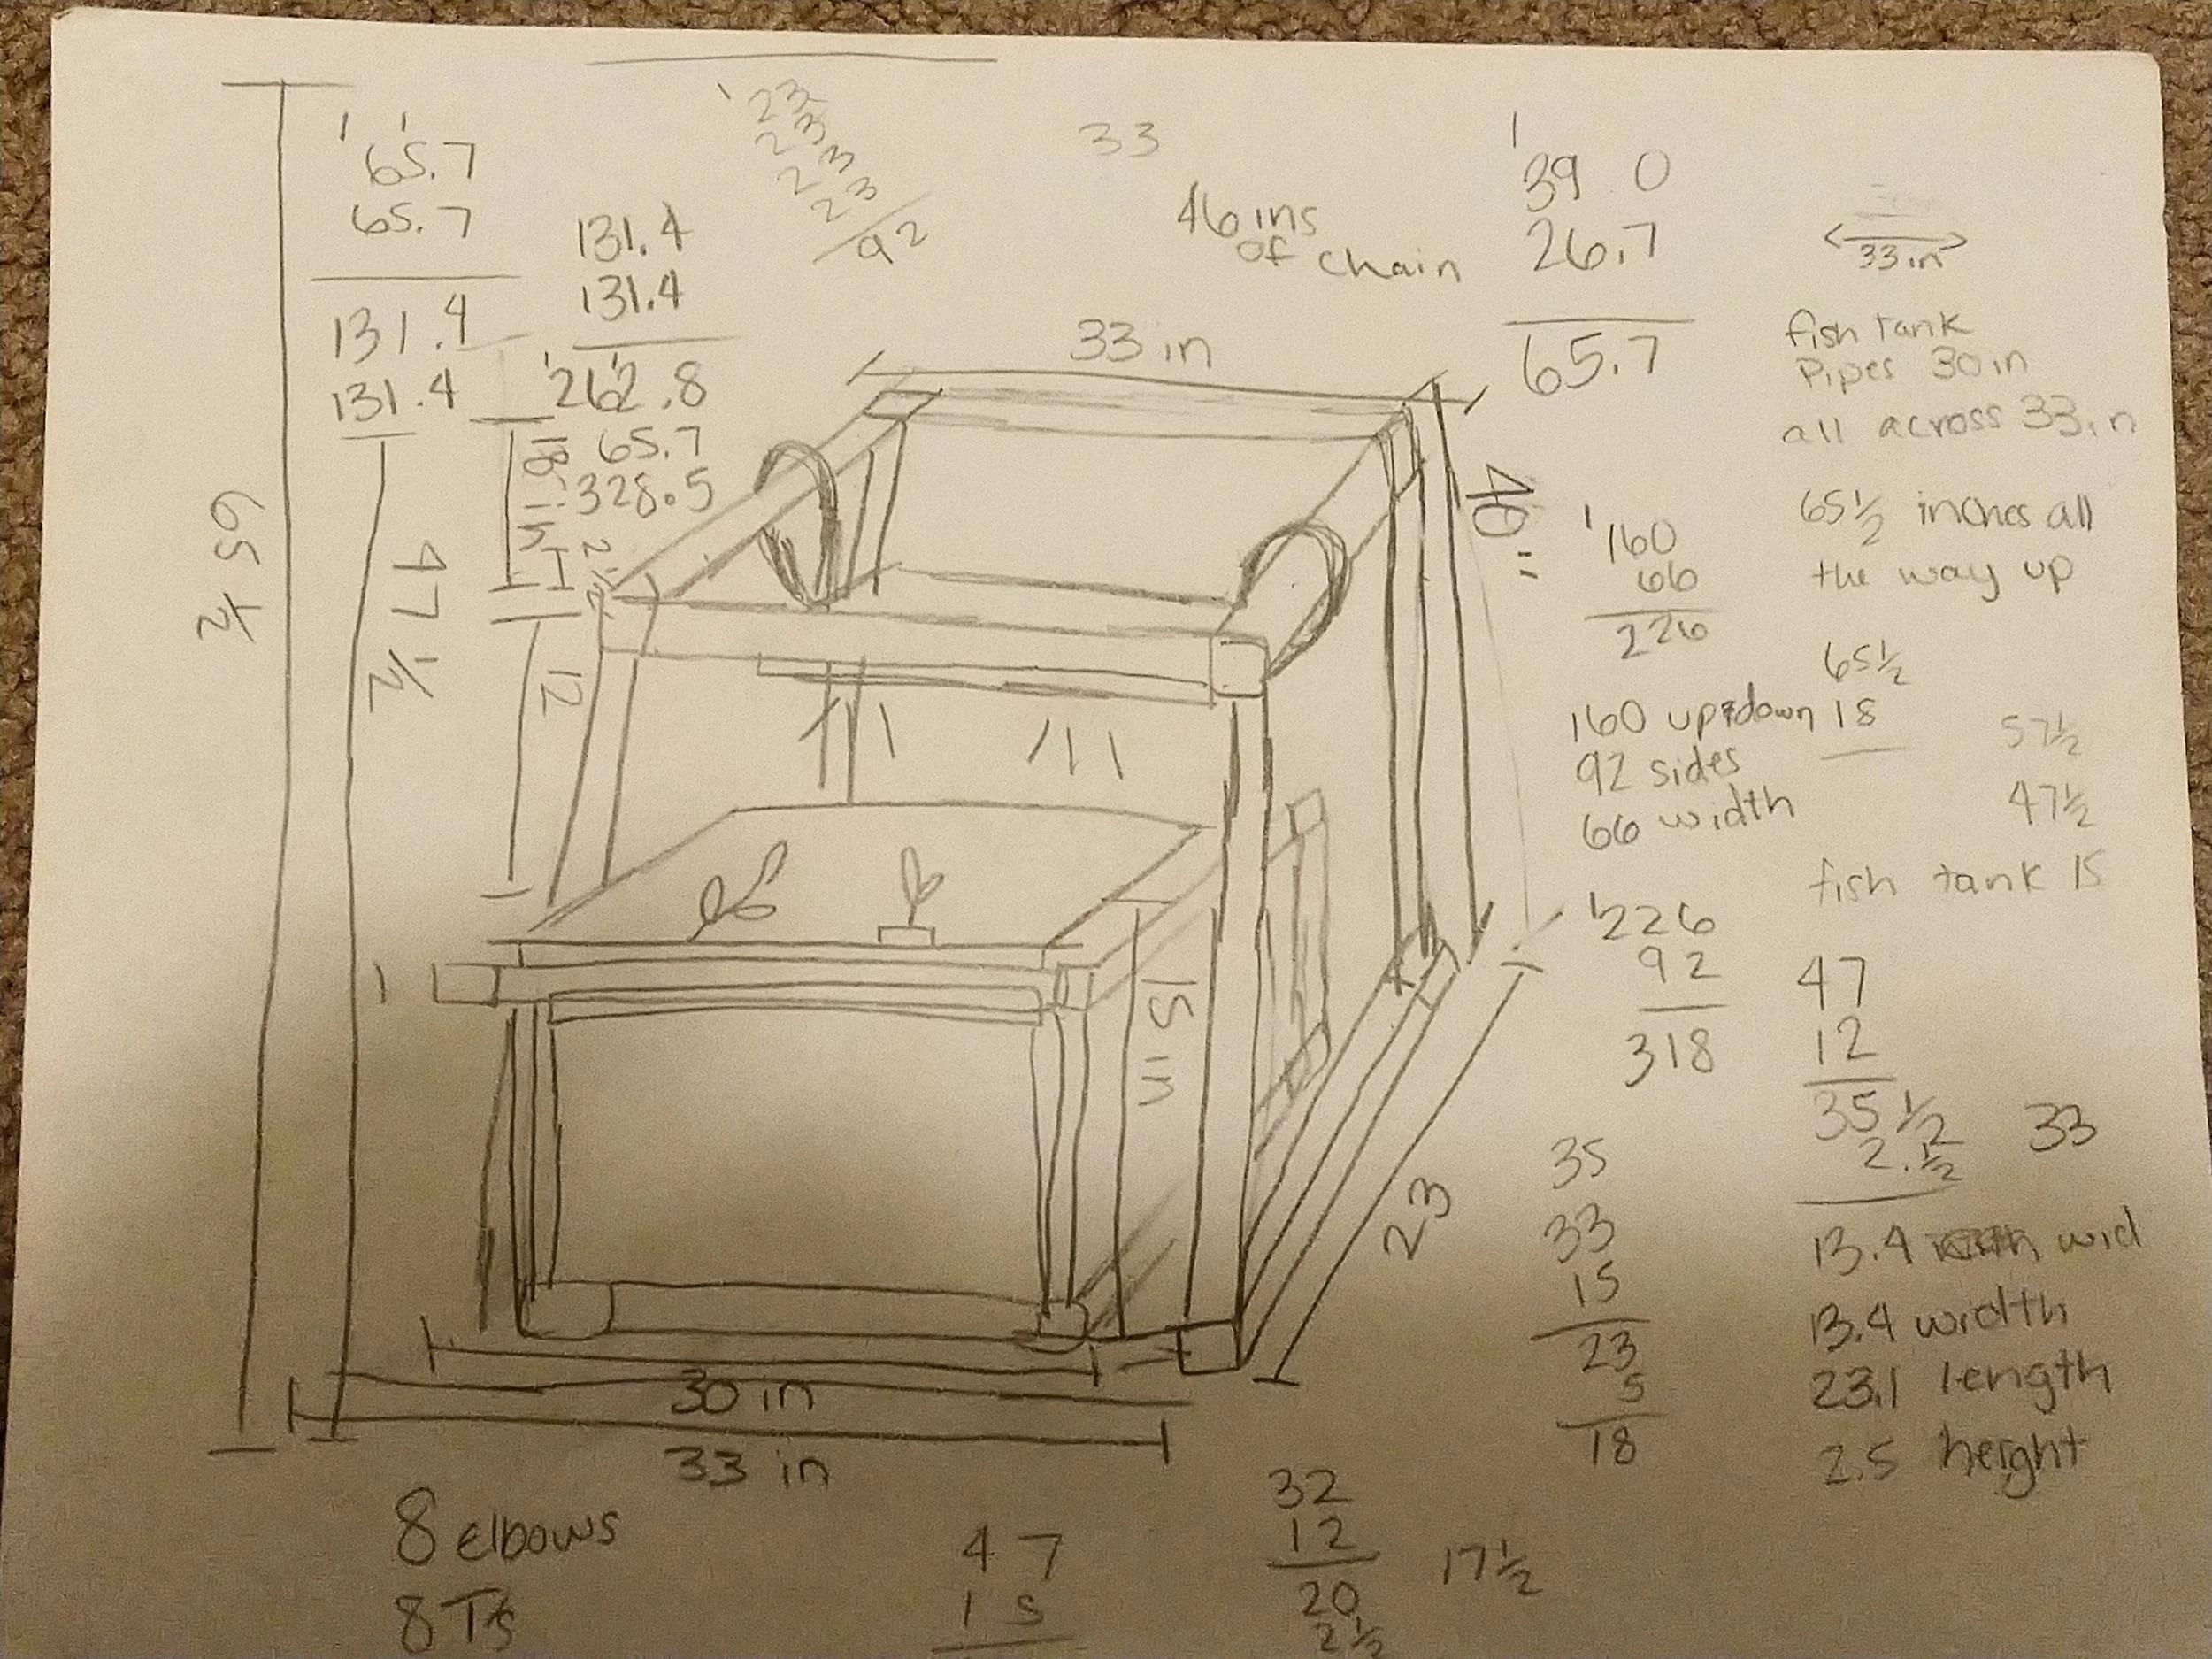 1 1
65.7
65.7
131.4
131.4
131.4
131.4
1 1
262.8
65.7
328.5
1
23
23
23
23
92
33
46 ins
of chain
1
39 0
26.7
65.7
33 in
fish tank
Pipes 30 in
all across 33 in
65 1/2 inches all
the way up
65 1/2
18
57 1/2
47 1/2
fish tank 15
47
12
35 1/2
2. 1/2
33
13.4 wid
13.4 width
23.1 length
2.5 height
1
160
66
226
160 up&down
92 sides
66 width
1
226
92
318
35
33
15
23
5
18
33 in
40"
65 1/2
47 1/2
18
12
15 in
23
30 in
33 in
8 elbows
8 Ts
47
15
32
12
20
2 1/2
17 1/2